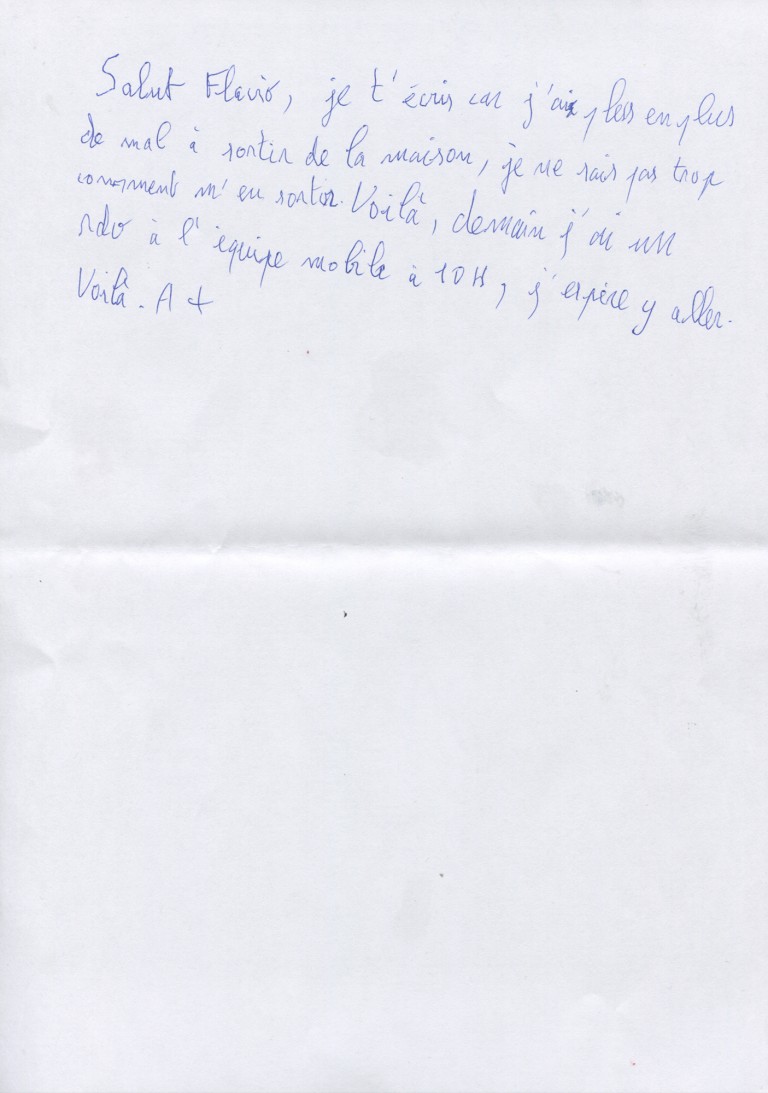 Salut Flavio, je t'écris car j'ai plus en plus
de mal à sortir de la maison, je ne sais pas trop
comment m'en sortir. Voilà, demain j'ai un
rdv à l'équipe mobile à 10H, j'espère y aller.
Voilà. A +